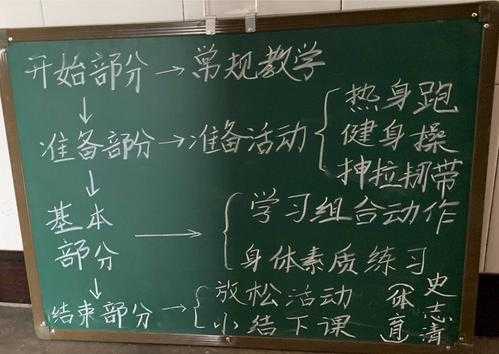 开始部分→常规教学
↓
准备部分→准备活动{热身跑
健身操
抻拉韧带
↓
基本部分→{学习组合动作
身体素质练习
↓
结束部分→{放松活动
小结下课
(体育)
史志清